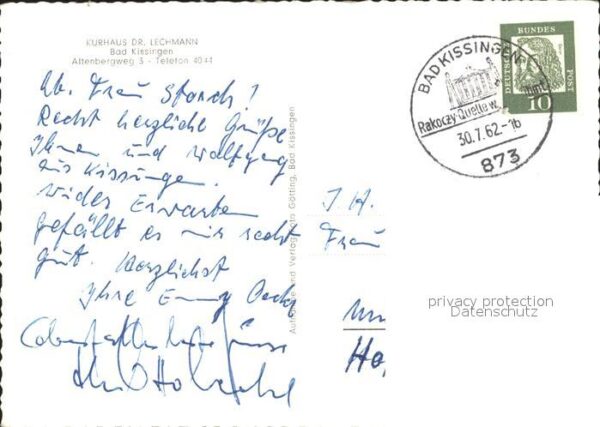 KURHAUS DR. LECHMANN
Bad Kissingen
Altenbergweg 3 - Telefon 4044
Lb. Frau Storch!
Recht herzliche Grüße
Ihnen und Wolfgang
aus Kissingen.
Wider Erwarten
gefällt es mir recht
gut. Herzlichst
Ihre Emmy
Ebenfalls
Aufnahme und Verlag Götting, Bad Kissingen
BAD KISSINGEN
Rakoczy-Quelle w.
30.7.62-16
873
DEUTSCHE BUNDESPOST
10
Frau
privacy protection
Datenschutz